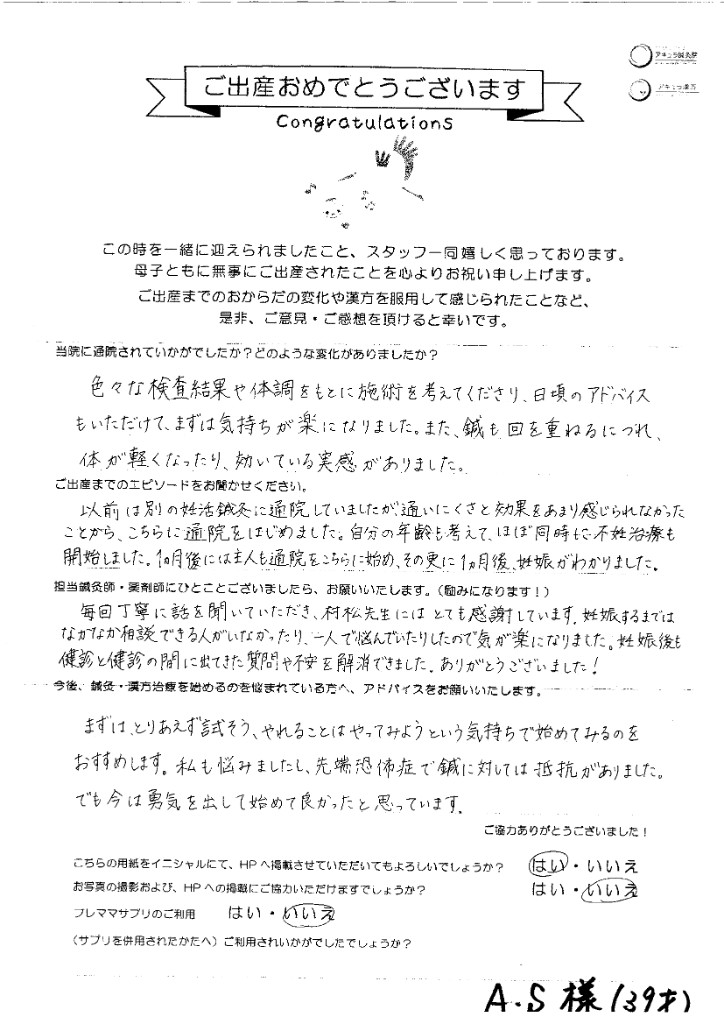 アキュラ鍼灸院
アキュラ漢方
ご出産おめでとうございます
Congratulations
この時を一緒に迎えられましたこと、スタッフ一同嬉しく思っております。
母子ともに無事にご出産されたことを心よりお祝い申し上げます。
ご出産までのおからだの変化や漢方を服用して感じられたことなど、
是非、ご意見・ご感想を頂けると幸いです。
当院に通院されていかがでしたか?どのような変化がありましたか?
色々な検査結果や体調をもとに施術を考えてくださり、日頃のアドバイス
もいただけて、まずは気持ちが楽になりました。また、鍼も回を重ねるにつれ、
体が軽くなったり、効いている実感がありました。
ご出産までのエピソードをお聞かせください。
以前は別の妊活鍼灸に通院していましたが通いにくさと効果をあまり感じられなかった
ことから、こちらに通院をはじめました。自分の年齢も考えて、ほぼ同時に不妊治療も
開始しました。1ヵ月後には主人も通院をこちらに始め、その更に1ヵ月後、妊娠がわかりました。
担当鍼灸師・薬剤師にひとことございましたら、お願いいたします。(励みになります!)
毎回丁寧に話を聞いていただき、村松先生にはとても感謝しています。妊娠するまでは
なかなか相談できる人がいなかったり、一人で悩んでいたりしたので気が楽になりました。妊娠後も
健診と健診の間に出てきた質問や不安を解消できました。ありがとうございました!
今後、鍼灸・漢方治療を始めるのを悩まれている方へ、アドバイスをお願いいたします。
まずは、とりあえず試そう、やれることはやってみようという気持ちで始めてみるのを
おすすめします。私も悩みましたし、先端恐怖症で鍼に対しては抵抗がありました。
でも今は勇気を出して始めて良かったと思っています。
ご協力ありがとうございました!
こちらの用紙をイニシャルにて、HPへ掲載させていただいてもよろしいでしょうか? はい・いいえ
お写真の撮影および、HPへの掲載にご協力いただけますでしょうか? はい・いいえ
プレママサプリのご利用 はい・いいえ
(サプリを併用されたかたへ)ご利用されいかがでしたでしょうか?
A.S様(39才)